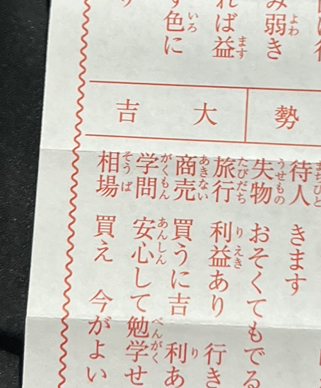 み弱き
れば益
ず色に
勢
大吉
待人 きます
失物 おそくてもでる
旅行 利益あり 行き
商売 買うに吉 利あ
学問 安心して勉学せ
相場 買え 今がよい